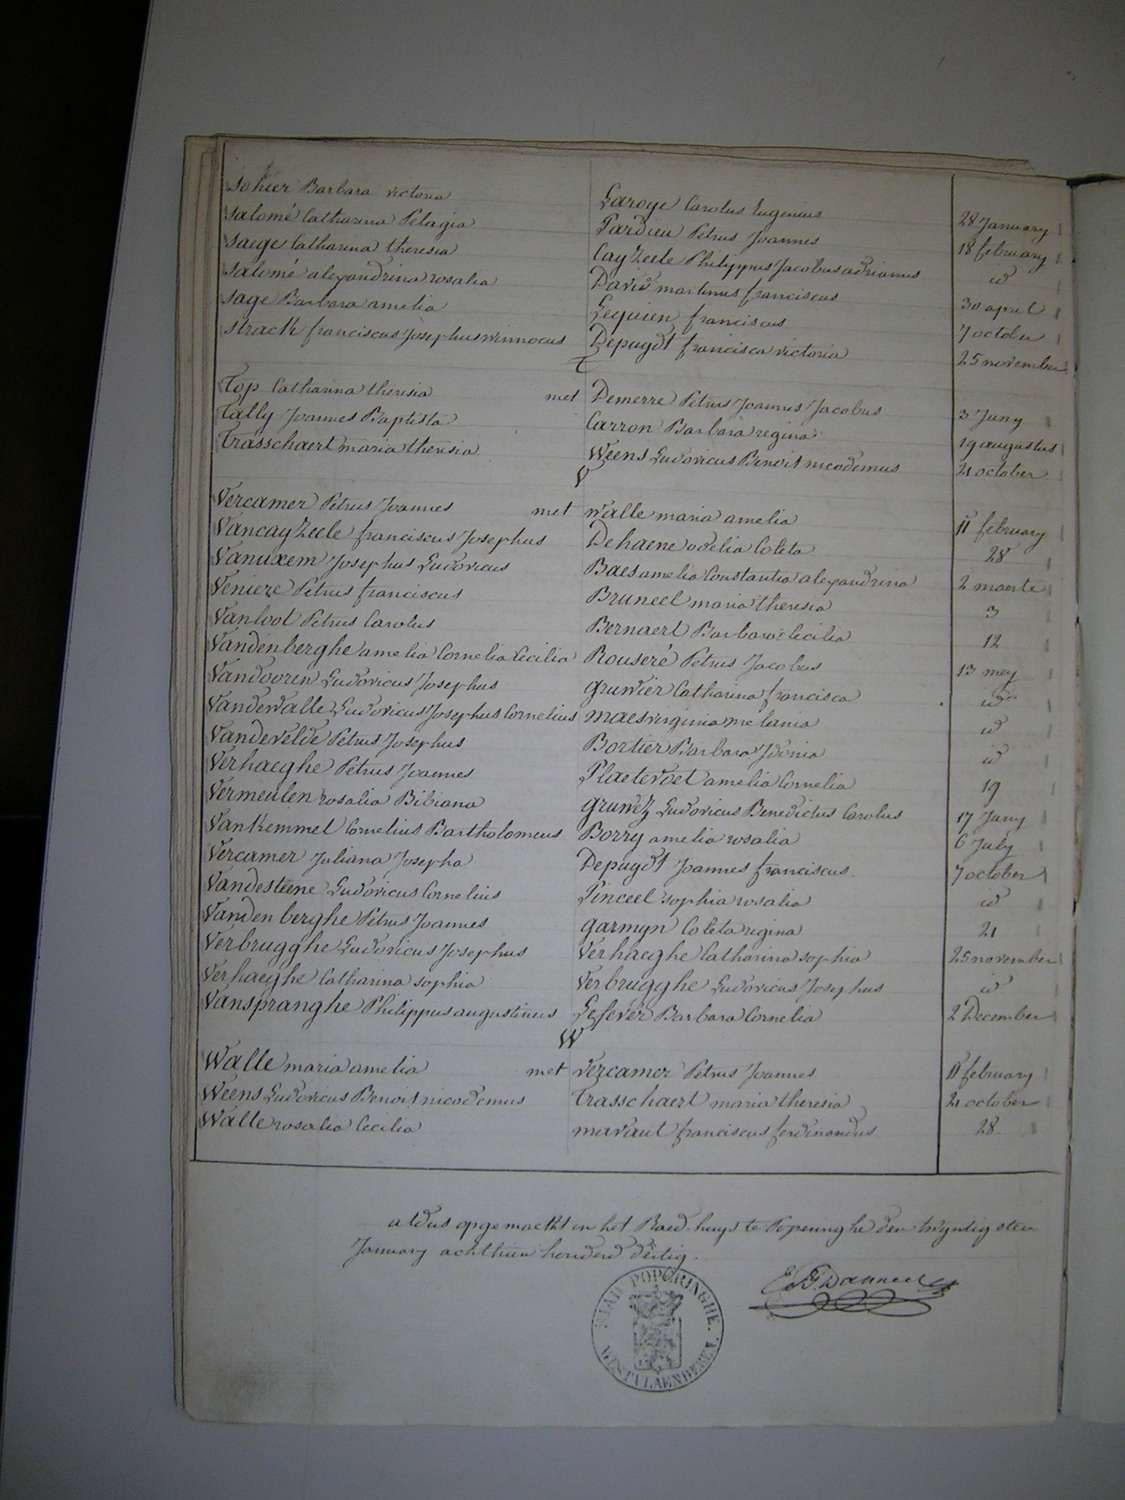 Sohier Barbara victoria Laroye Carolus Eugenius 28 January
Salomé Catharina Pelagia Pardieu Petrus Joannes 18 february
Saege Catharina theresia Cayzeele Philippus Jacobus adrianus id
Salomé alexandrina rosalia David martinus franciscus 30 april
Sage Barbara amelia Lequien franciscus 7 october
Strack franciscus Josephus winnocus Depuydt francisca victoria 25 november
T
Top Catharina theresia met Demerre Petrus Joannes Jacobus 3 Juny
Tally Joannes Baptista Carron Barbara regina 19 augustus
Trasschaert maria theresia Weens Ludovicus Benoit nicodemus 21 october
V
Vercamer Petrus Joannes met Walle maria amelia 11 february
Vancayzeele franciscus Josephus Dehaene odelia Coleta 28
Vanuxem Josephus Ludovicus Baes amelia Constantia alexandrina 2 maerte
Veniere Petrus franciscus Bruneel maria theresia 3
Vanloot Petrus Carolus Bernaert Barbara Cecilia 12
Vandenberghe amelia Cornelia Cecilia Rouseré Petrus Jacobus 13 mey
Vandooren Ludovicus Josephus Gruwier Catharina francisca id
Vandewalle Ludovicus Josephus Cornelius Maes virginia melania id
Vandevelde Petrus Josephus Bortier Barbara Idonia id
Verhaeghe Petrus Joannes Plaetevoet amelia Cornelia 19
Vermeulen rosalia Bibiana Gruwez Ludovicus Benedictus Carolus 17 Juny
Vankemmel Cornelius Bartholomeus Borry amelia rosalia 6 July
Vercamer Juliana Josepha Depuydt Joannes franciscus 7 october
Vandesteene Ludovicus Cornelius Pinceel sophia rosalia id
Vandenberghe Petrus Joannes Garmyn Coleta regina 21
Verbrugghe Ludovicus Josephus Verhaeghe Catharina sophia 25 november
Verhaeghe Catharina sophia Verbrugghe Ludovicus Josephus id
Vanspranghe Philippus augustinus Lefever Barbara Cornelia 2 December
W
Walle maria amelia met Vercamer Petrus Joannes 11 february
Weens Ludovicus Benoit nicodemus Trasschaert maria theresia 21 october
Walle rosalia Cecilia Maraut franciscus ferdinandus 28
aldus opgemaekt in het Raed-huys te Poperinghe den twyntigsten
January achthien honderd dertig.
STAD POPERINGHE.
WESTVLAENDEREN.